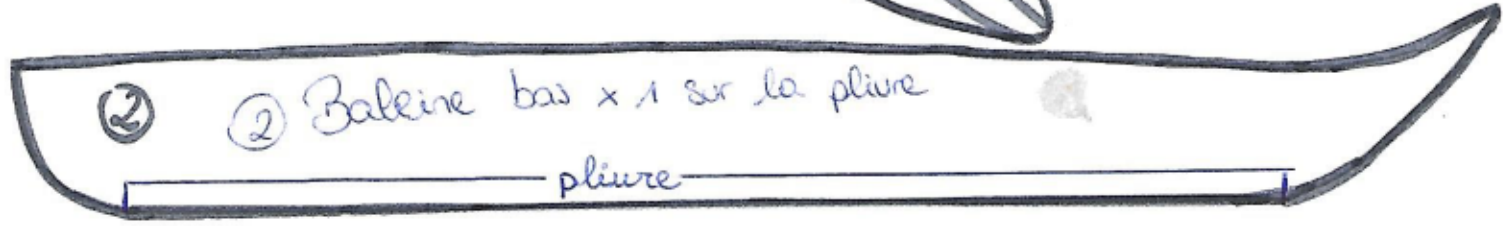 ②
② Baleine bas x 1 sur la pliure
pliure